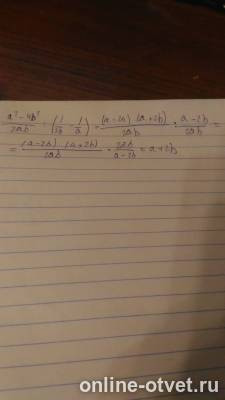 (a² - 4b²)/(2ab) : (1/(2b) - 1/a) = ((a-2b)·(a+2b))/(2ab) : (a-2b)/(2ab) =
= ((a-2b)·(a+2b))/(2ab) · (2ab)/(a-2b) = a+2b
online-otvet.ru